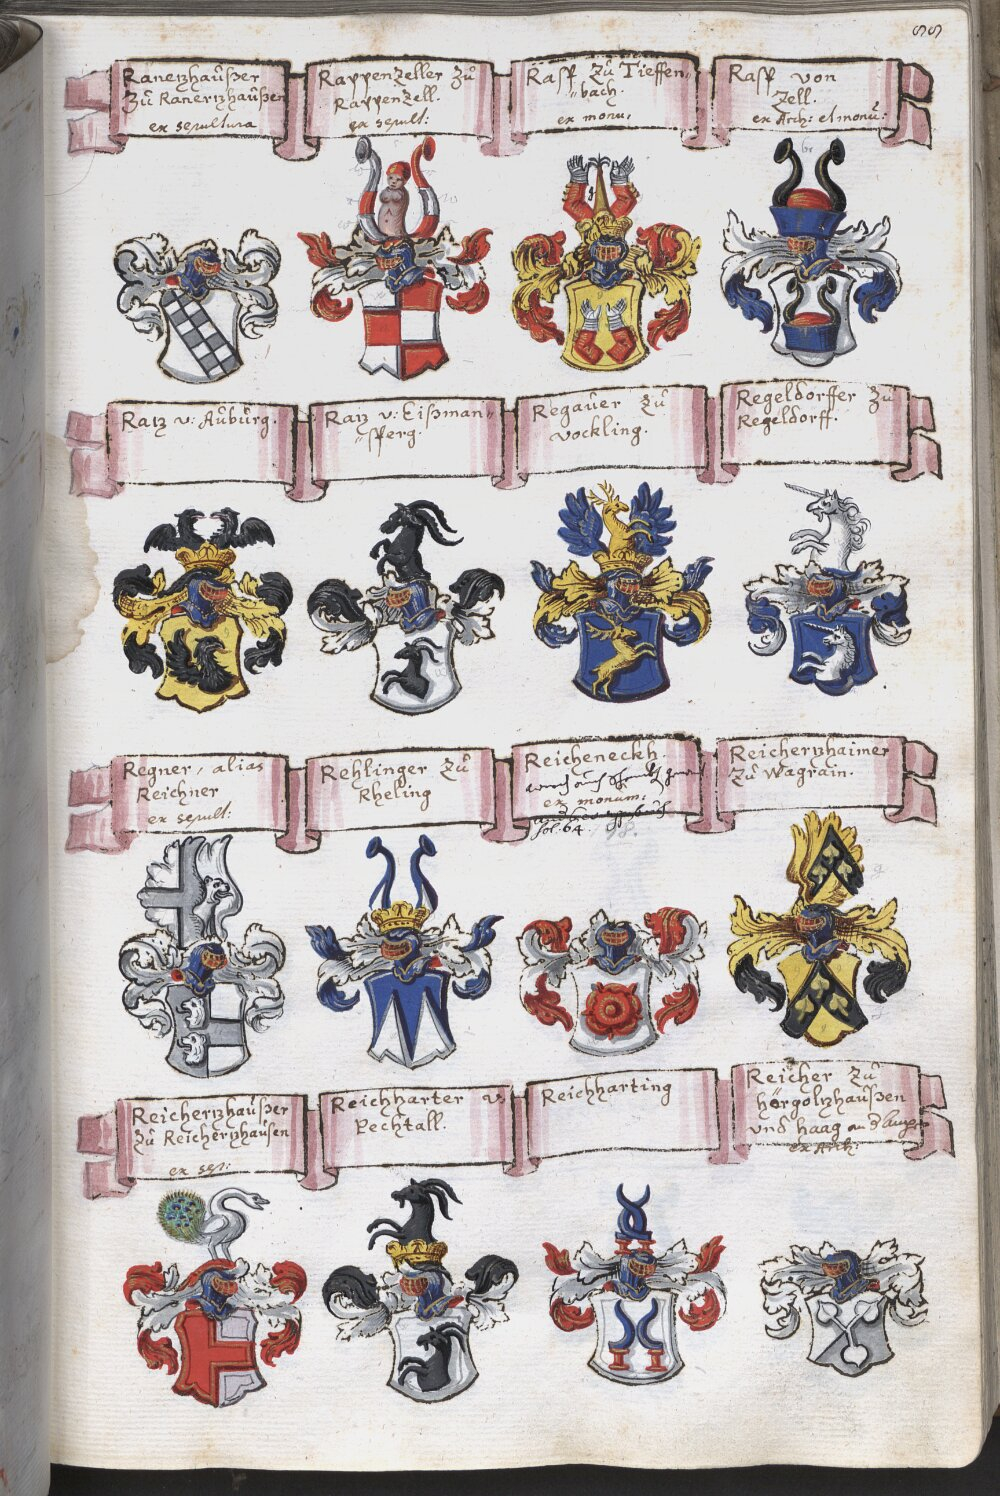 Ranertzhaüßer
Zü Ranertzhaüßen
ex sepultura
Rappenzeller Zü
Rappenzell.
ex sepult:
Rasp Zü Tieffen=
=bach.
ex monu.
Rasp von
Zell.
ex Arch: et monu:
Ratz v: Aübürg.
Ratz v: Eißman=
=sperg.
Regauer Zü
Vockling.
Regeldorffer Zü
Regeldorff.
Regner, alias
Reichner
ex sepult:
Rehlinger Zü
Rheling
Reicheneckh.
ex monum:
fol. 64.
Reichertzhaimer
Zü Wagrain.
Reichertzhaüßer
Zü Reichertzhaüsen
ex sep:
Reichharter v.
Pechtall.
Reichharting
Reicher Zü
hörgoltzhaüßen
vnd haag an d
ex Arch: